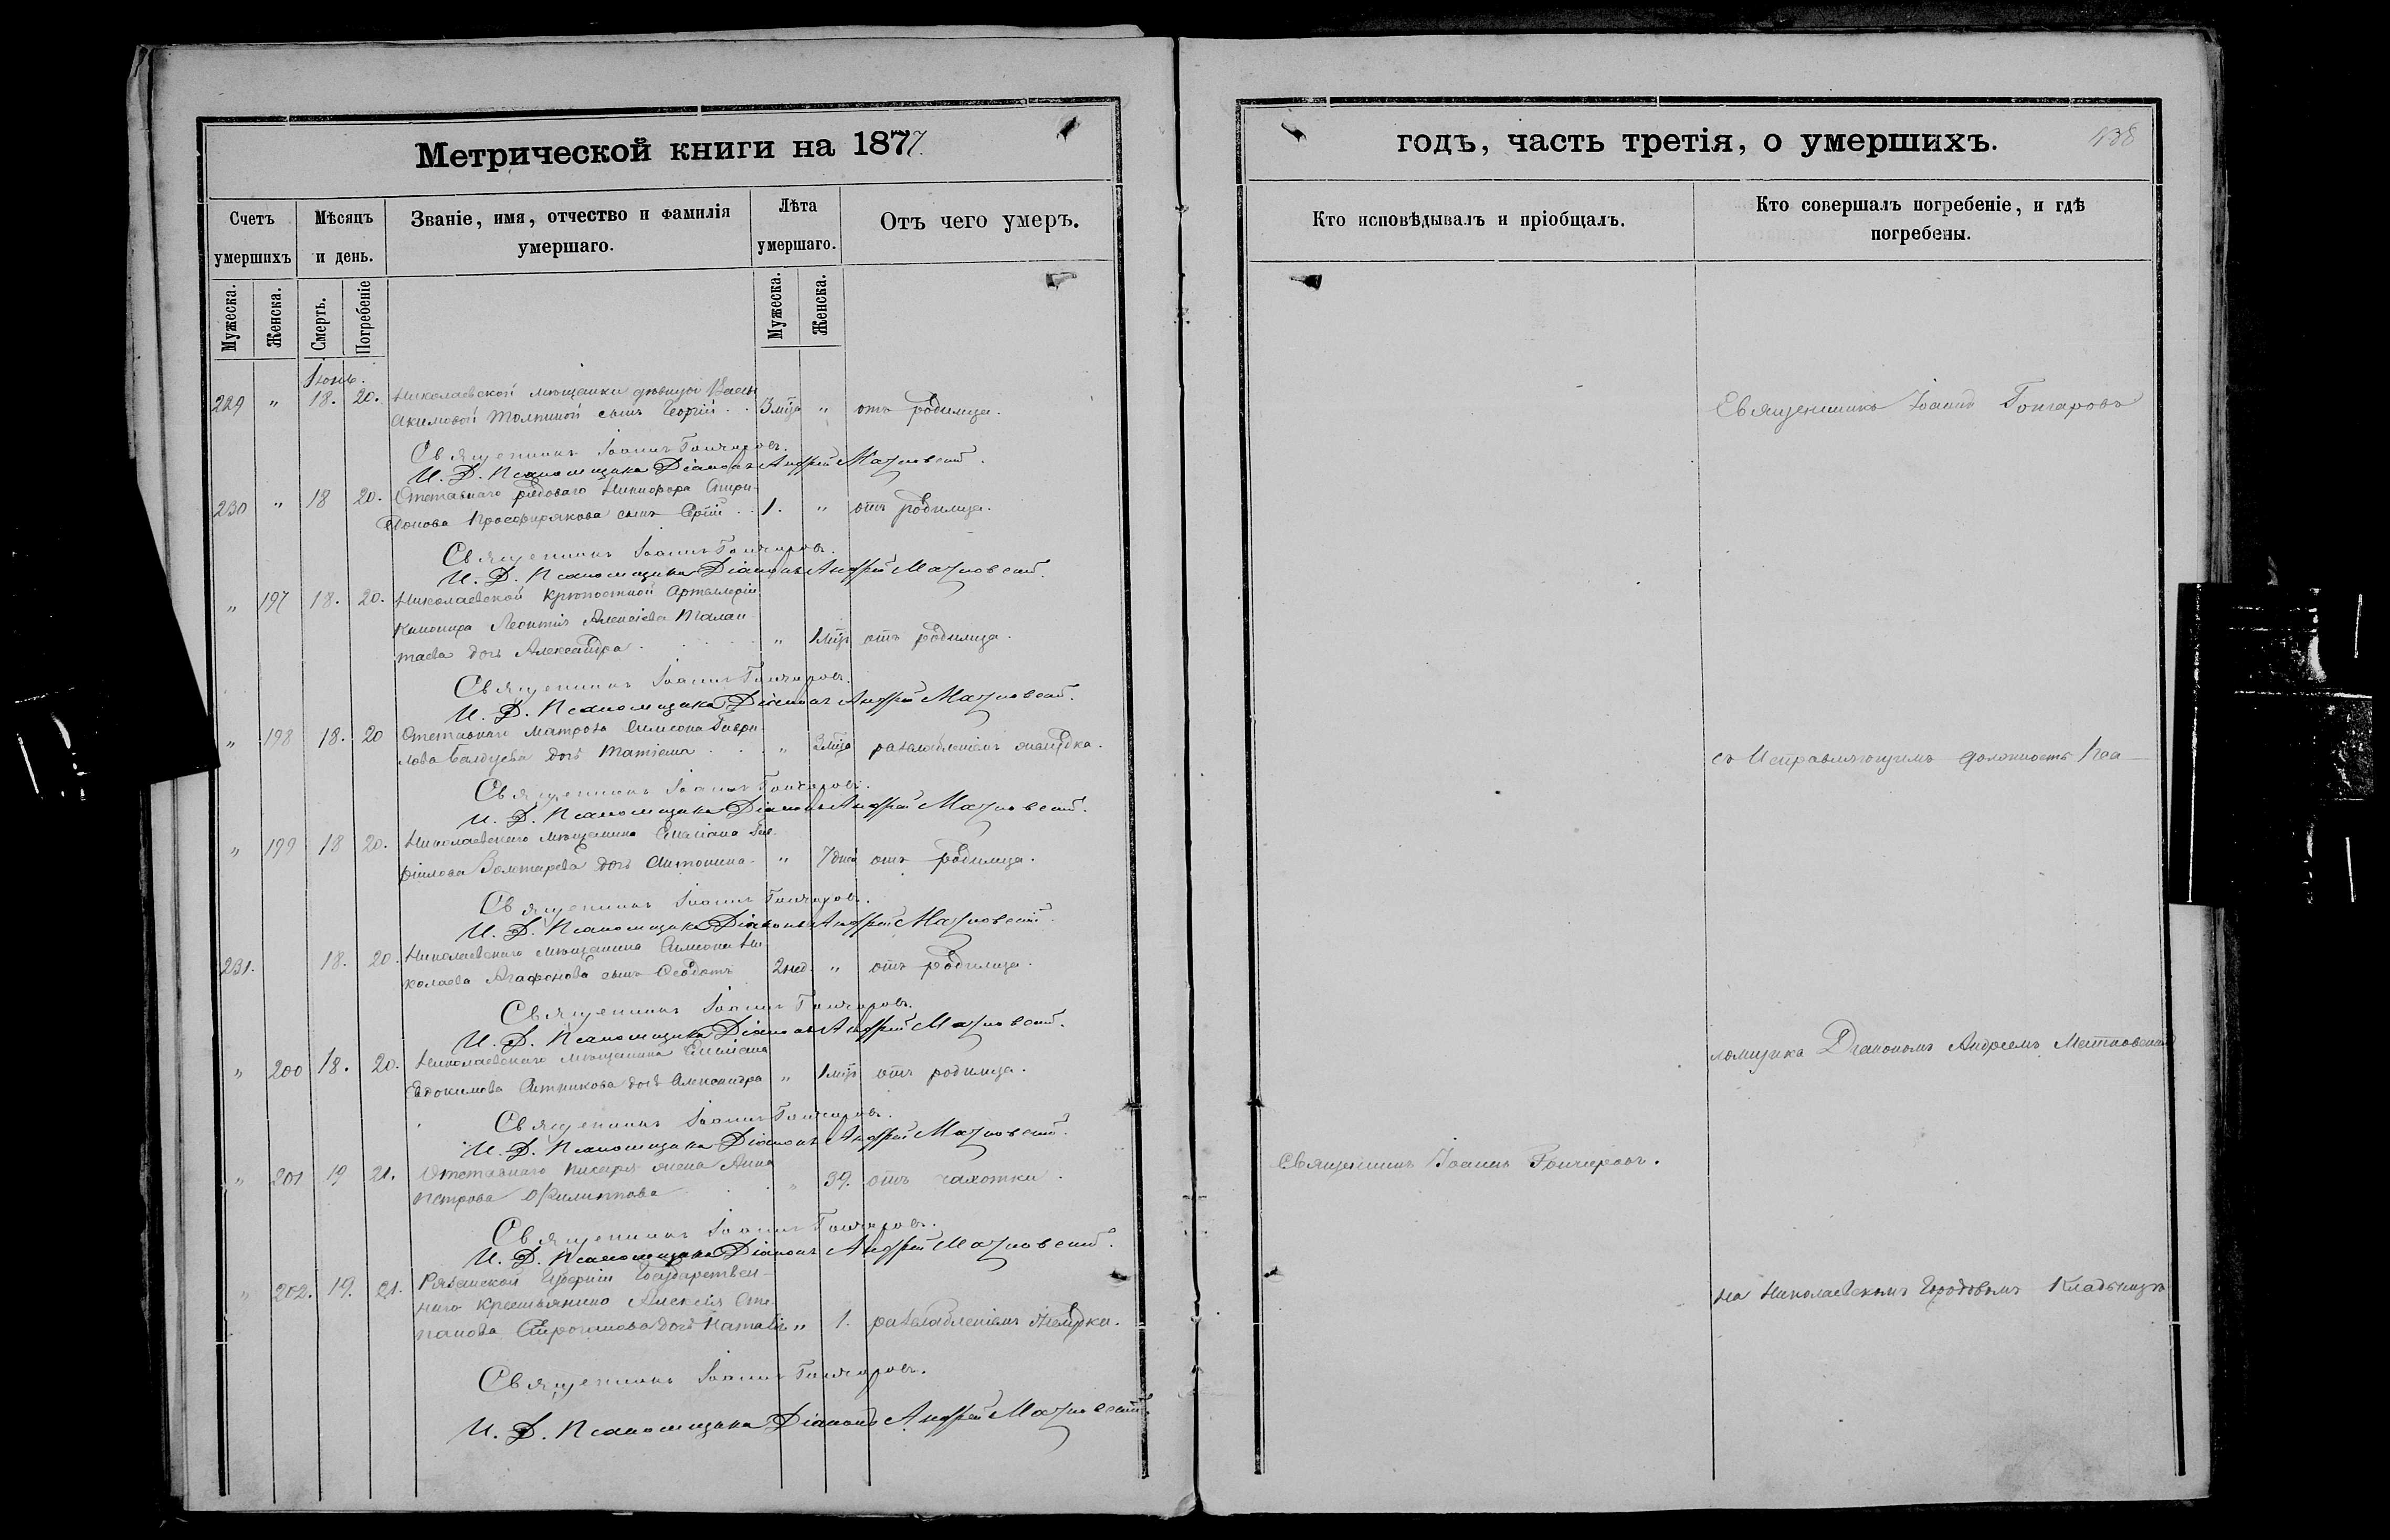 Метрической книги на 1877.
Счетъ умершихъ
Мѣсяцъ и день.
Званіе, имя, отчество и фамилія умершаго.
Лѣта умершаго.
Отъ чего умеръ.
Мужеска.
Женска.
Смерть.
Погребеніе
Мужеска.
Женска.
Іюнь.
229 " 18. 20. Николаевской мѣщанки дѣвицы
Акимовой сынъ Георгій . . 3 мца " отъ родимца.
Священникъ Іоаннъ Гончаровъ.
И. Д. Псаломщика Діаконъ Андрей
230 " 18 20. Отставнаго рядоваго Никифора Спири-
донова Просфирякова сынъ Сергій . . 1. " отъ родимца.
Священникъ Іоаннъ Гончаровъ.
И. Д. Псаломщика Діаконъ Андрей
" 197 18. 20. Николаевской крѣпостной Артиллеріи
Канонира Леонтія Алексѣева Талан-
таева дочь Александра . . . " 1 мця отъ родимца.
Священникъ Іоаннъ Гончаровъ.
И. Д. Псаломщика Діаконъ Андрей
" 198 18. 20 Отставнаго матроса Симеона Гаври-
лова дочь Татіана . . . " 2 мца разслабленіемъ желудка.
Священникъ Іоаннъ Гончаровъ.
И. Д. Псаломщика Діаконъ Андрей
" 199 18 20. Николаевскаго мѣщанина Емиліана
Золотарева дочь Антонина. " 7 дней отъ родимца.
Священникъ Іоаннъ Гончаровъ.
И. Д. Псаломщика Діаконъ Андрей
231. 18. 20. Николаевскаго мѣщанина Симеона Ни-
колаева Агафонова сынъ Ѳеодотъ 2 нед. " отъ родимца.
Священникъ Іоаннъ Гончаровъ.
И. Д. Псаломщика Діаконъ Андрей
" 200 18. 20. Николаевскаго мѣщанина Емиліана
Евдокимова Ситникова дочь Александра " 1 мця отъ родимца.
Священникъ Іоаннъ Гончаровъ.
И. Д. Псаломщика Діаконъ Андрей
" 201 19 21. Отставнаго писаря жена Анна
Петрова Филиппова . . " 39. отъ чахотки.
Священникъ Іоаннъ Гончаровъ.
И. Д. Псаломщика Діаконъ Андрей
" 202. 19. 21. Рязанской Губерніи Государствен-
наго крестьянина Алексѣя Сте-
панова дочь Наталія " 1. разслабленіемъ желудка.
Священникъ Іоаннъ Гончаровъ.
И. Д. Псаломщика Діаконъ Андрей
годъ, часть третія, о умершихъ.
438
Кто исповѣдывалъ и пріобщалъ.
Кто совершалъ погребеніе, и гдѣ погребены.
Священникъ Іоаннъ Гончаровъ
съ Исправляющимъ должность Пса-
ломщика Діакономъ Андреемъ
Священникъ Іоаннъ Гончаровъ.
на Николаевскомъ Городовомъ Кладбищѣ